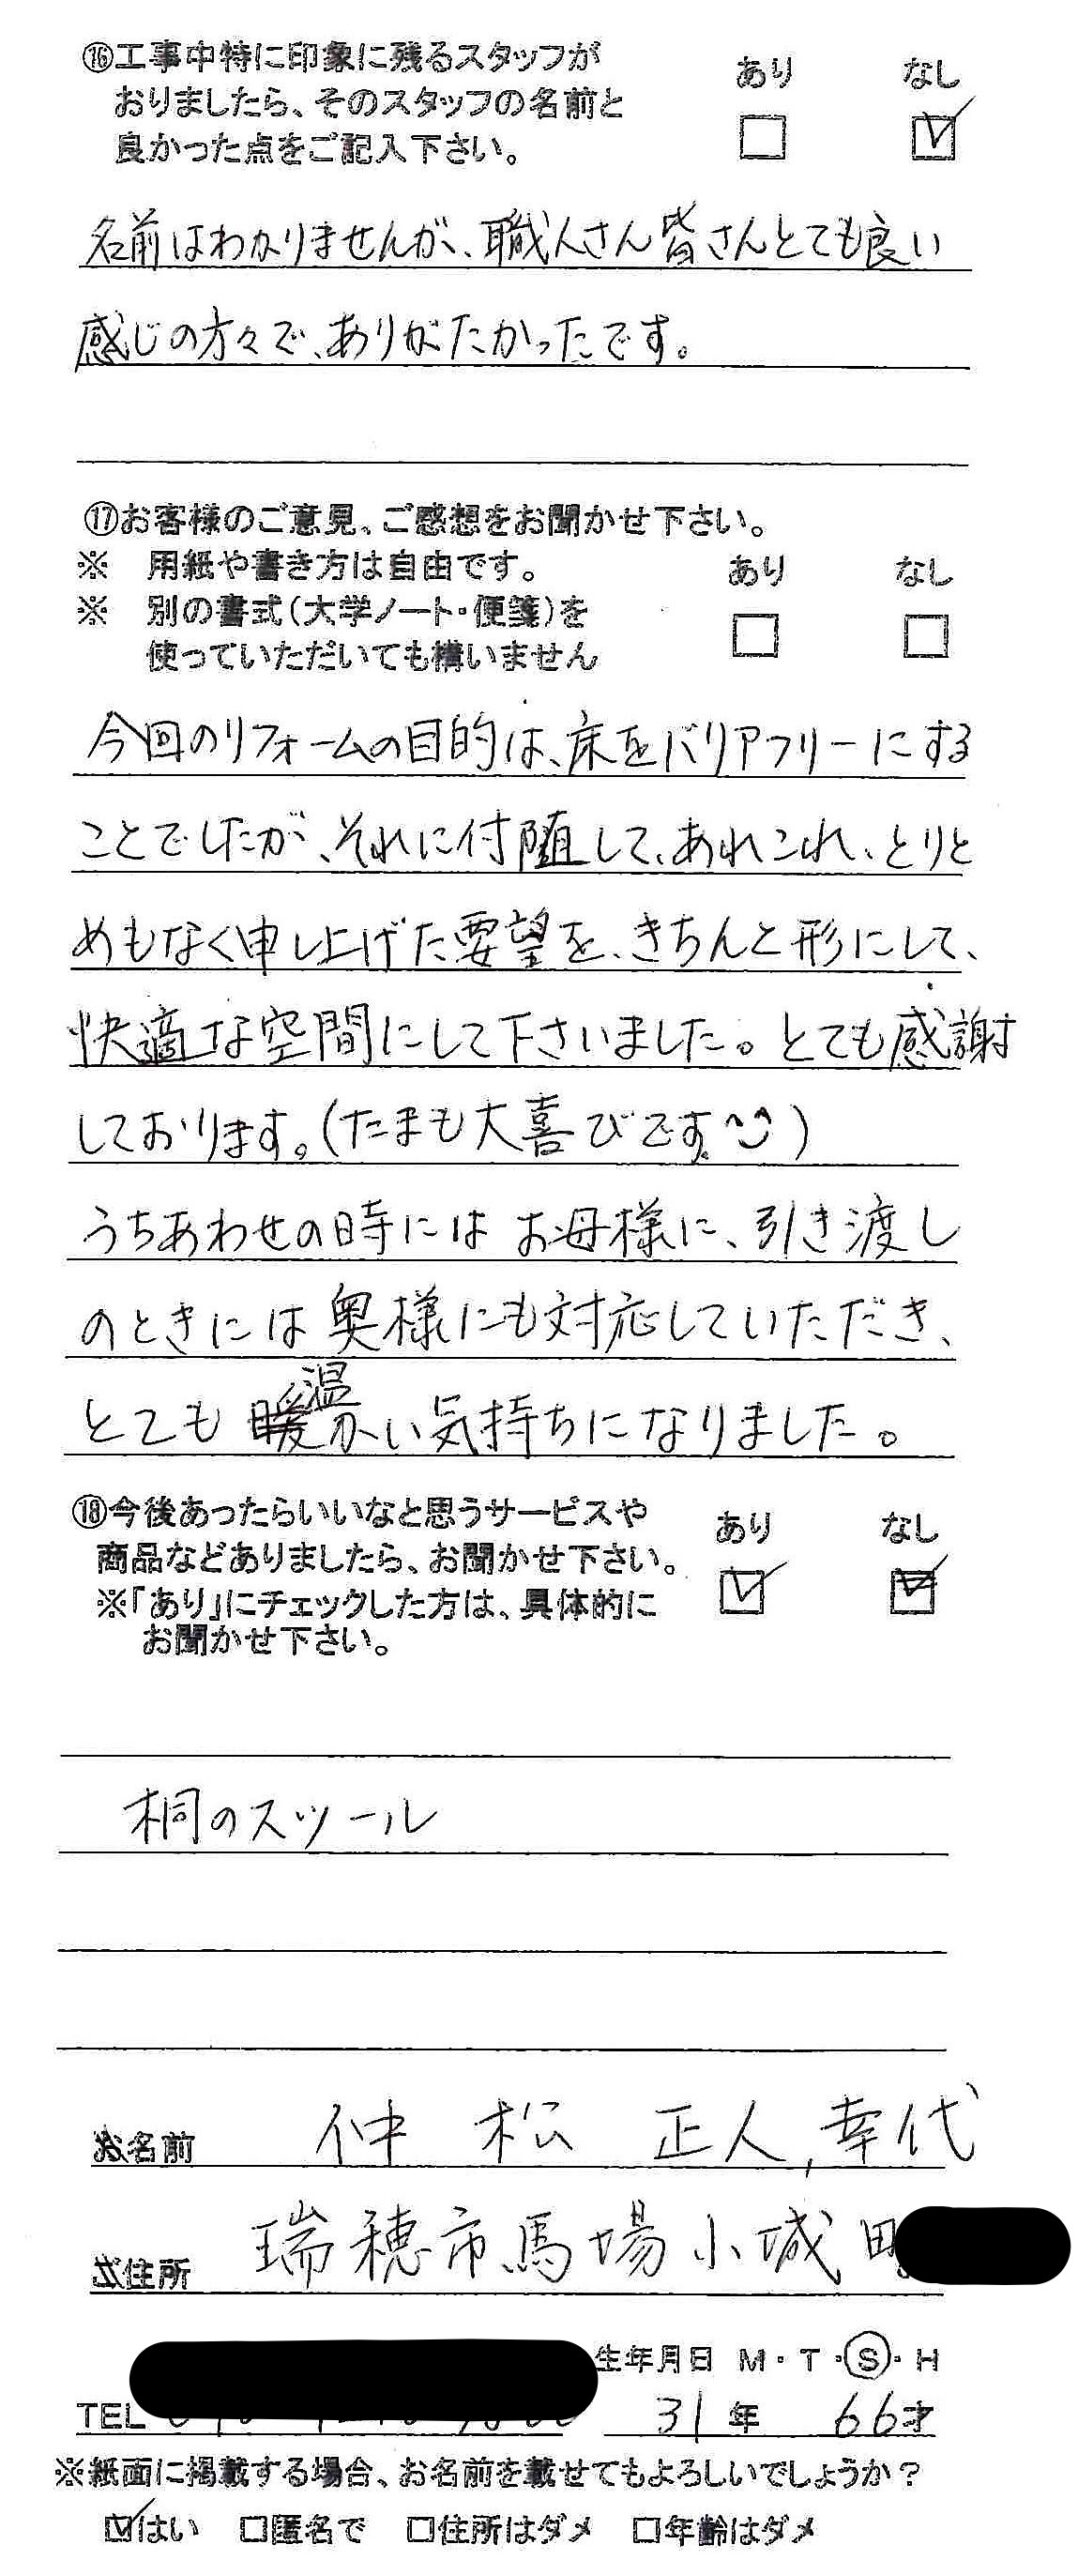 ⑯工事中特に印象に残るスタッフが
おりましたら、そのスタッフの名前と
良かった点をご記入下さい。
あり なし
名前はわかりませんが、職人さん皆さんとても良い
感じの方々で、ありがたかったです。
⑰お客様のご意見、ご感想をお聞かせ下さい。
※ 用紙や書き方は自由です。
※ 別の書式(大学ノート・便箋)を
使っていただいても構いません
あり なし
今回のリフォームの目的は、床をバリアフリーにする
ことでしたが、それに付随して、あれこれ、とりと
めもなく申し上げた要望を、きちんと形にして、
快適な空間にして下さいました。とても感謝
しております。(たまも大喜びです。^^)
うちあわせの時にはお母様に、引き渡し
のときには奥様にも対応していただき、
とても温かい気持ちになりました。
⑱今後あったらいいなと思うサービスや
商品などありましたら、お聞かせ下さい。
※「あり」にチェックした方は、具体的に
お聞かせ下さい。
あり なし
桐のスツール
お名前 仲松 正人,幸代
ご住所 瑞穂市馬場小城町
生年月日 M・T・S・H
TEL
31年 66才
※紙面に掲載する場合、お名前を載せてもよろしいでしょうか?
はい 匿名で 住所はダメ 年齢はダメ